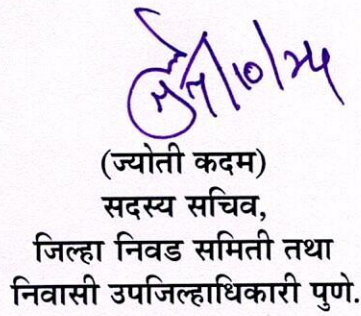 (ज्योती कदम)
सदस्य सचिव,
जिल्हा निवड समिती तथा
निवासी उपजिल्हाधिकारी पुणे.